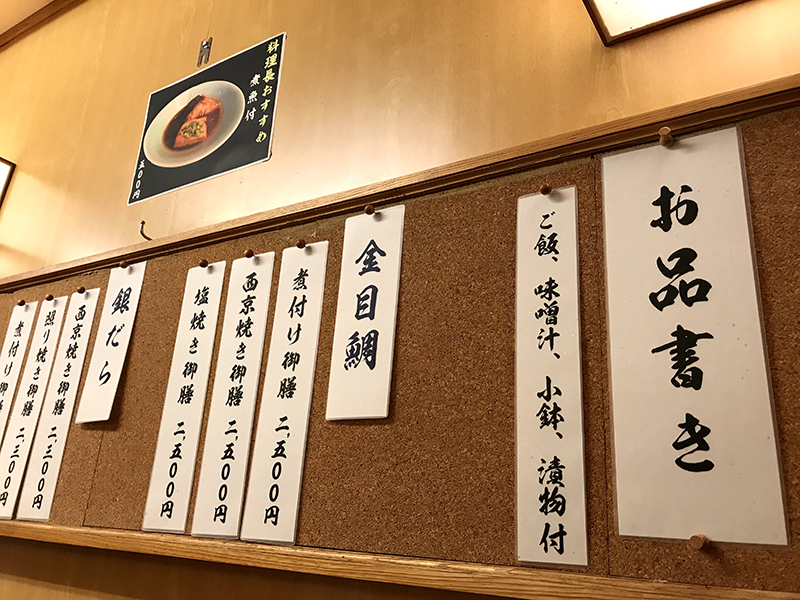 料理長おすすめ
煮魚付
五〇〇円
お品書き
ご飯、味噌汁、小鉢、漬物付
金目鯛
煮付け御膳 二,五〇〇円
西京焼き御膳 二,五〇〇円
塩焼き御膳 二,五〇〇円
銀だら
西京焼き御膳 二,三〇〇円
照り焼き御膳 二,三〇〇円
煮付け御膳 二,三〇〇円